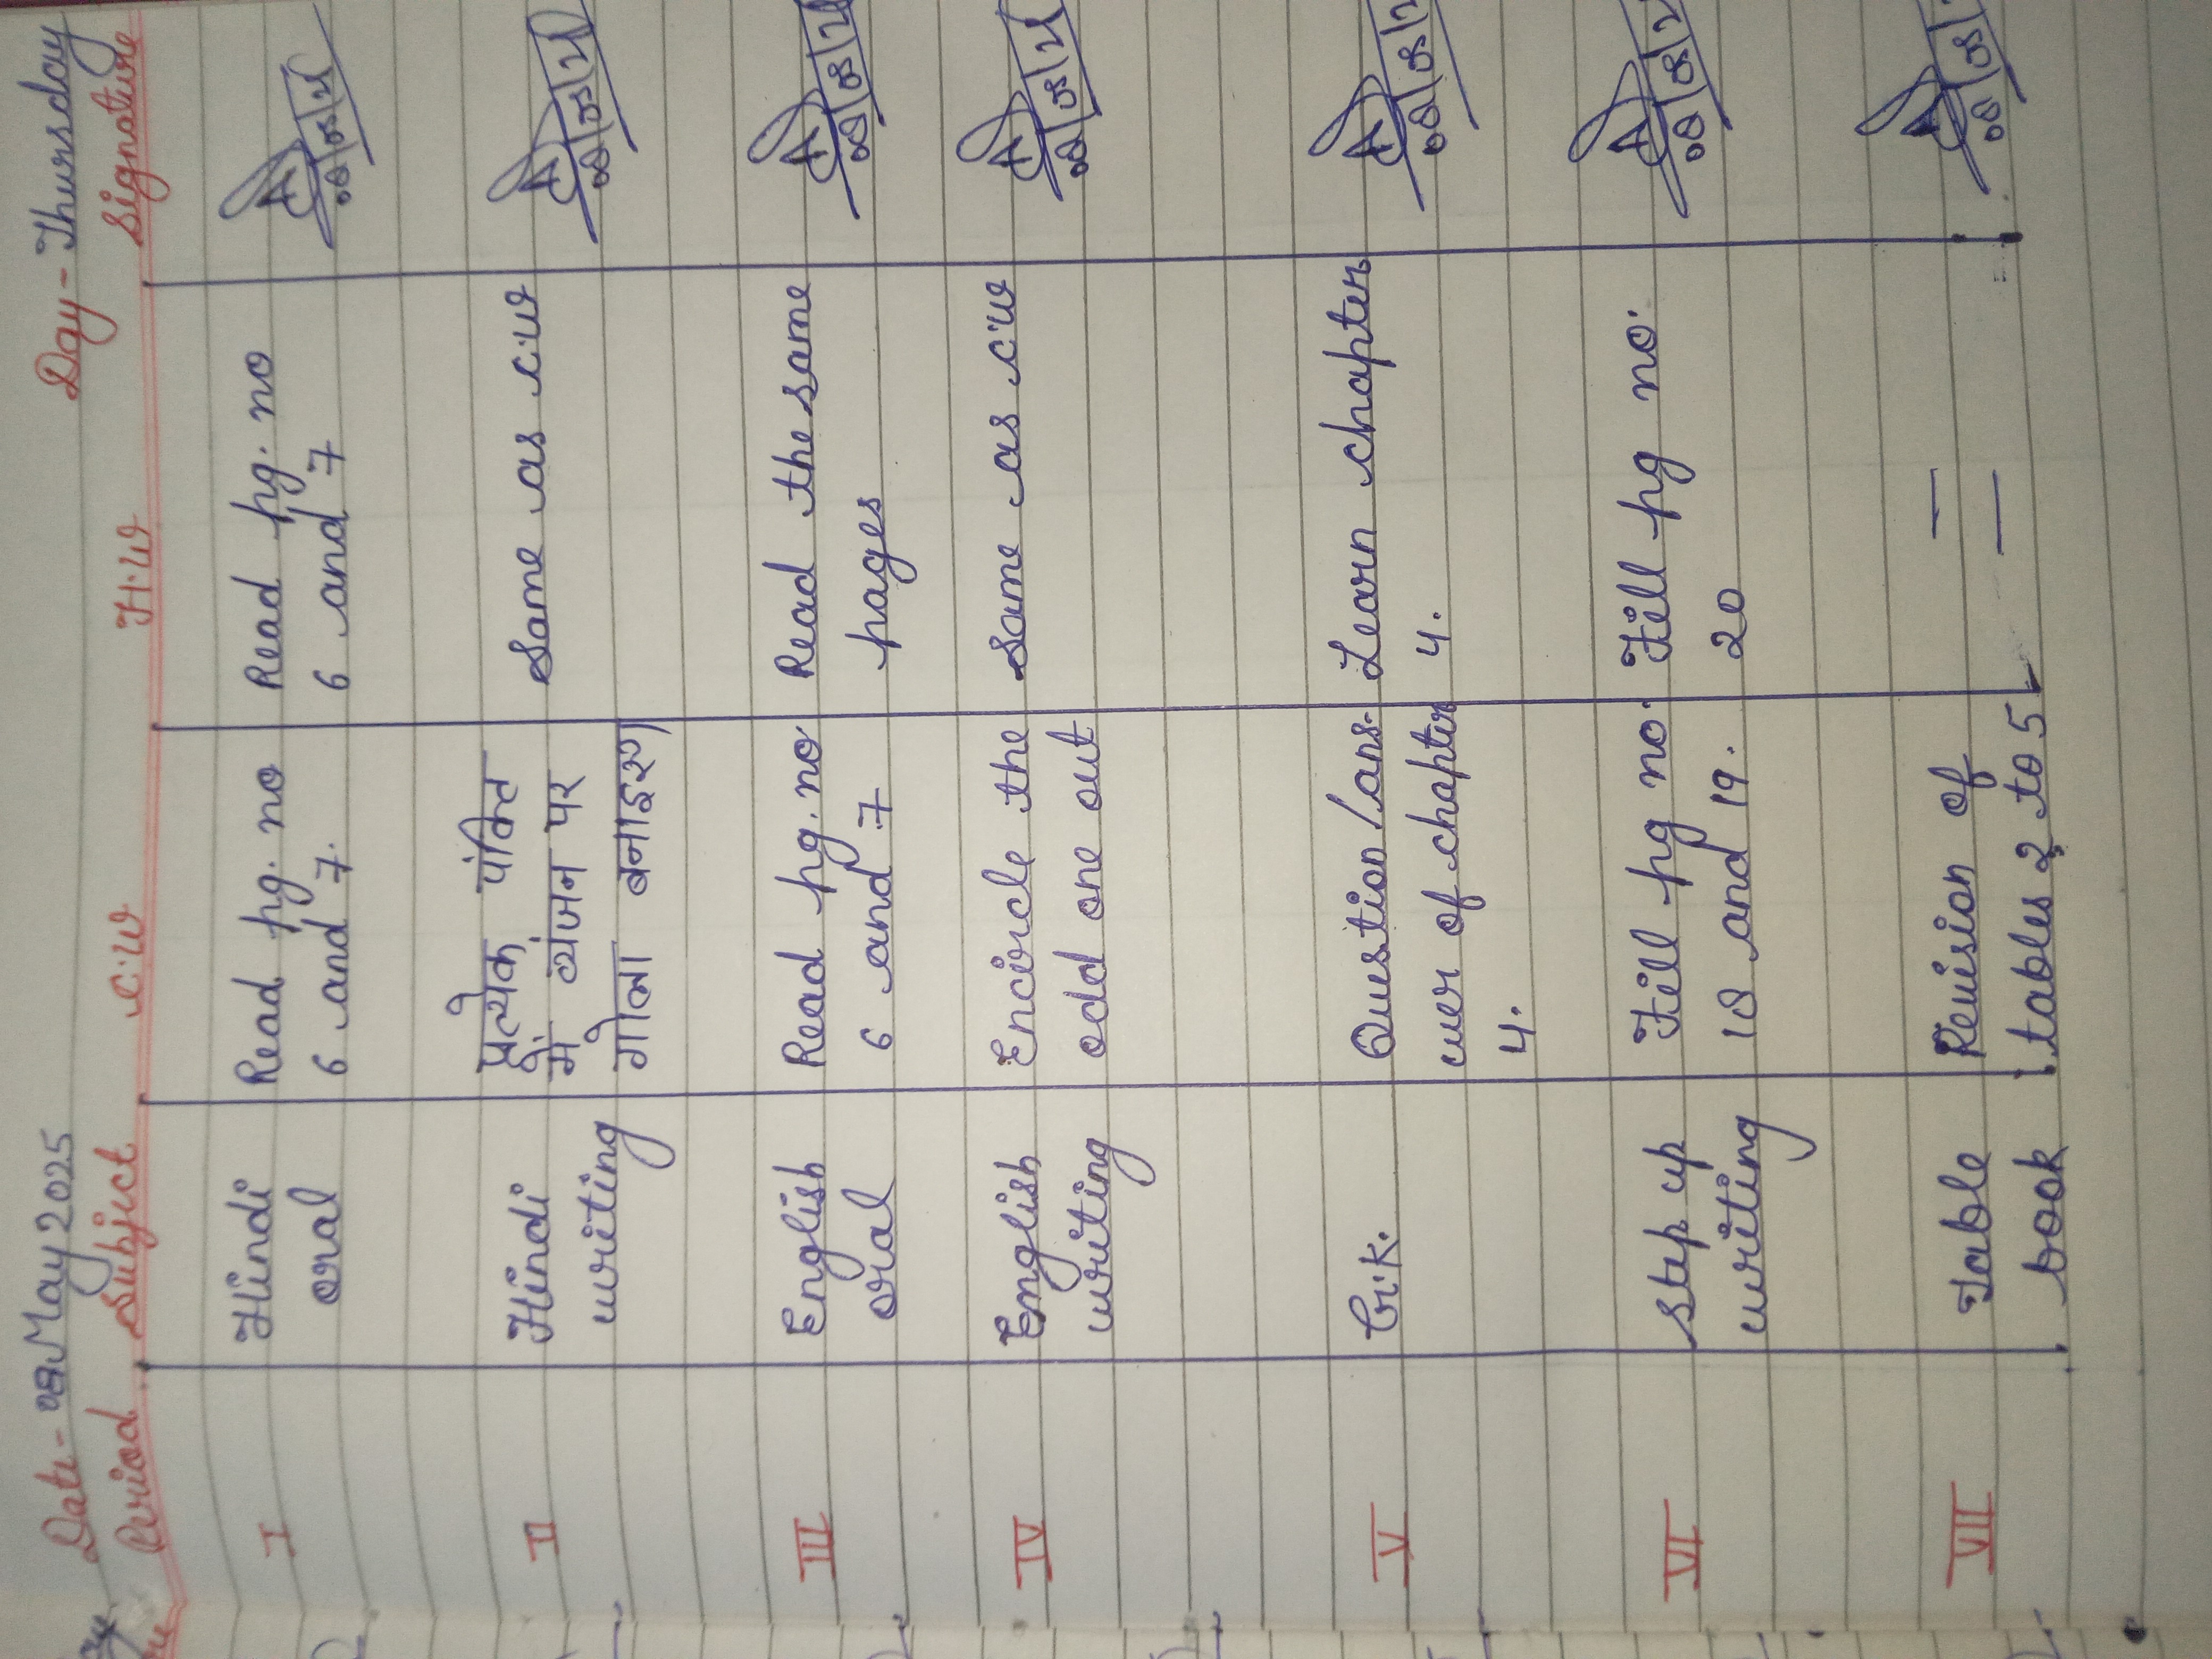 Date - 08 May 2025 Day - Thursday
Period Subject C.W H.W Signature
I Hindi Read pg. no Read pg. no
oral 6 and 7. 6 and 7
II Hindi प्रत्येक पंक्ति Same as C.W
writing में व्यंजन पर
गोला बनाइए।
III English Read pg. no Read the same
oral 6 and 7 pages
IV English Encircle the Same as C.W
writing odd one out
V G.K. Question/ans- Learn chapter
wer of chapter 4.
4.
VI Step up Fill pg no. Fill pg no.
writing 18 and 19. 20
VII Table Revision of —
book tables 2 to 5 —